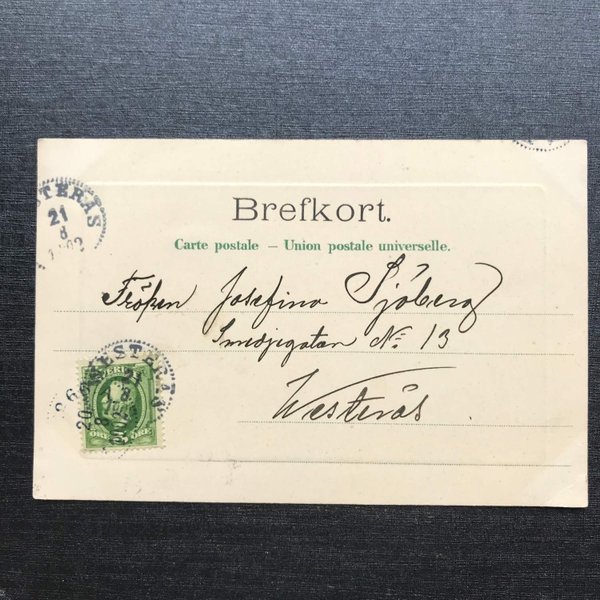 STERÅS
21
8
1902
Brefkort.
Carte postale – Union postale universelle.
Fröken Josefina Sjöberg
Smedjegatan No 13
Westerås.
VESTERÅS
21
8
SVERIGE